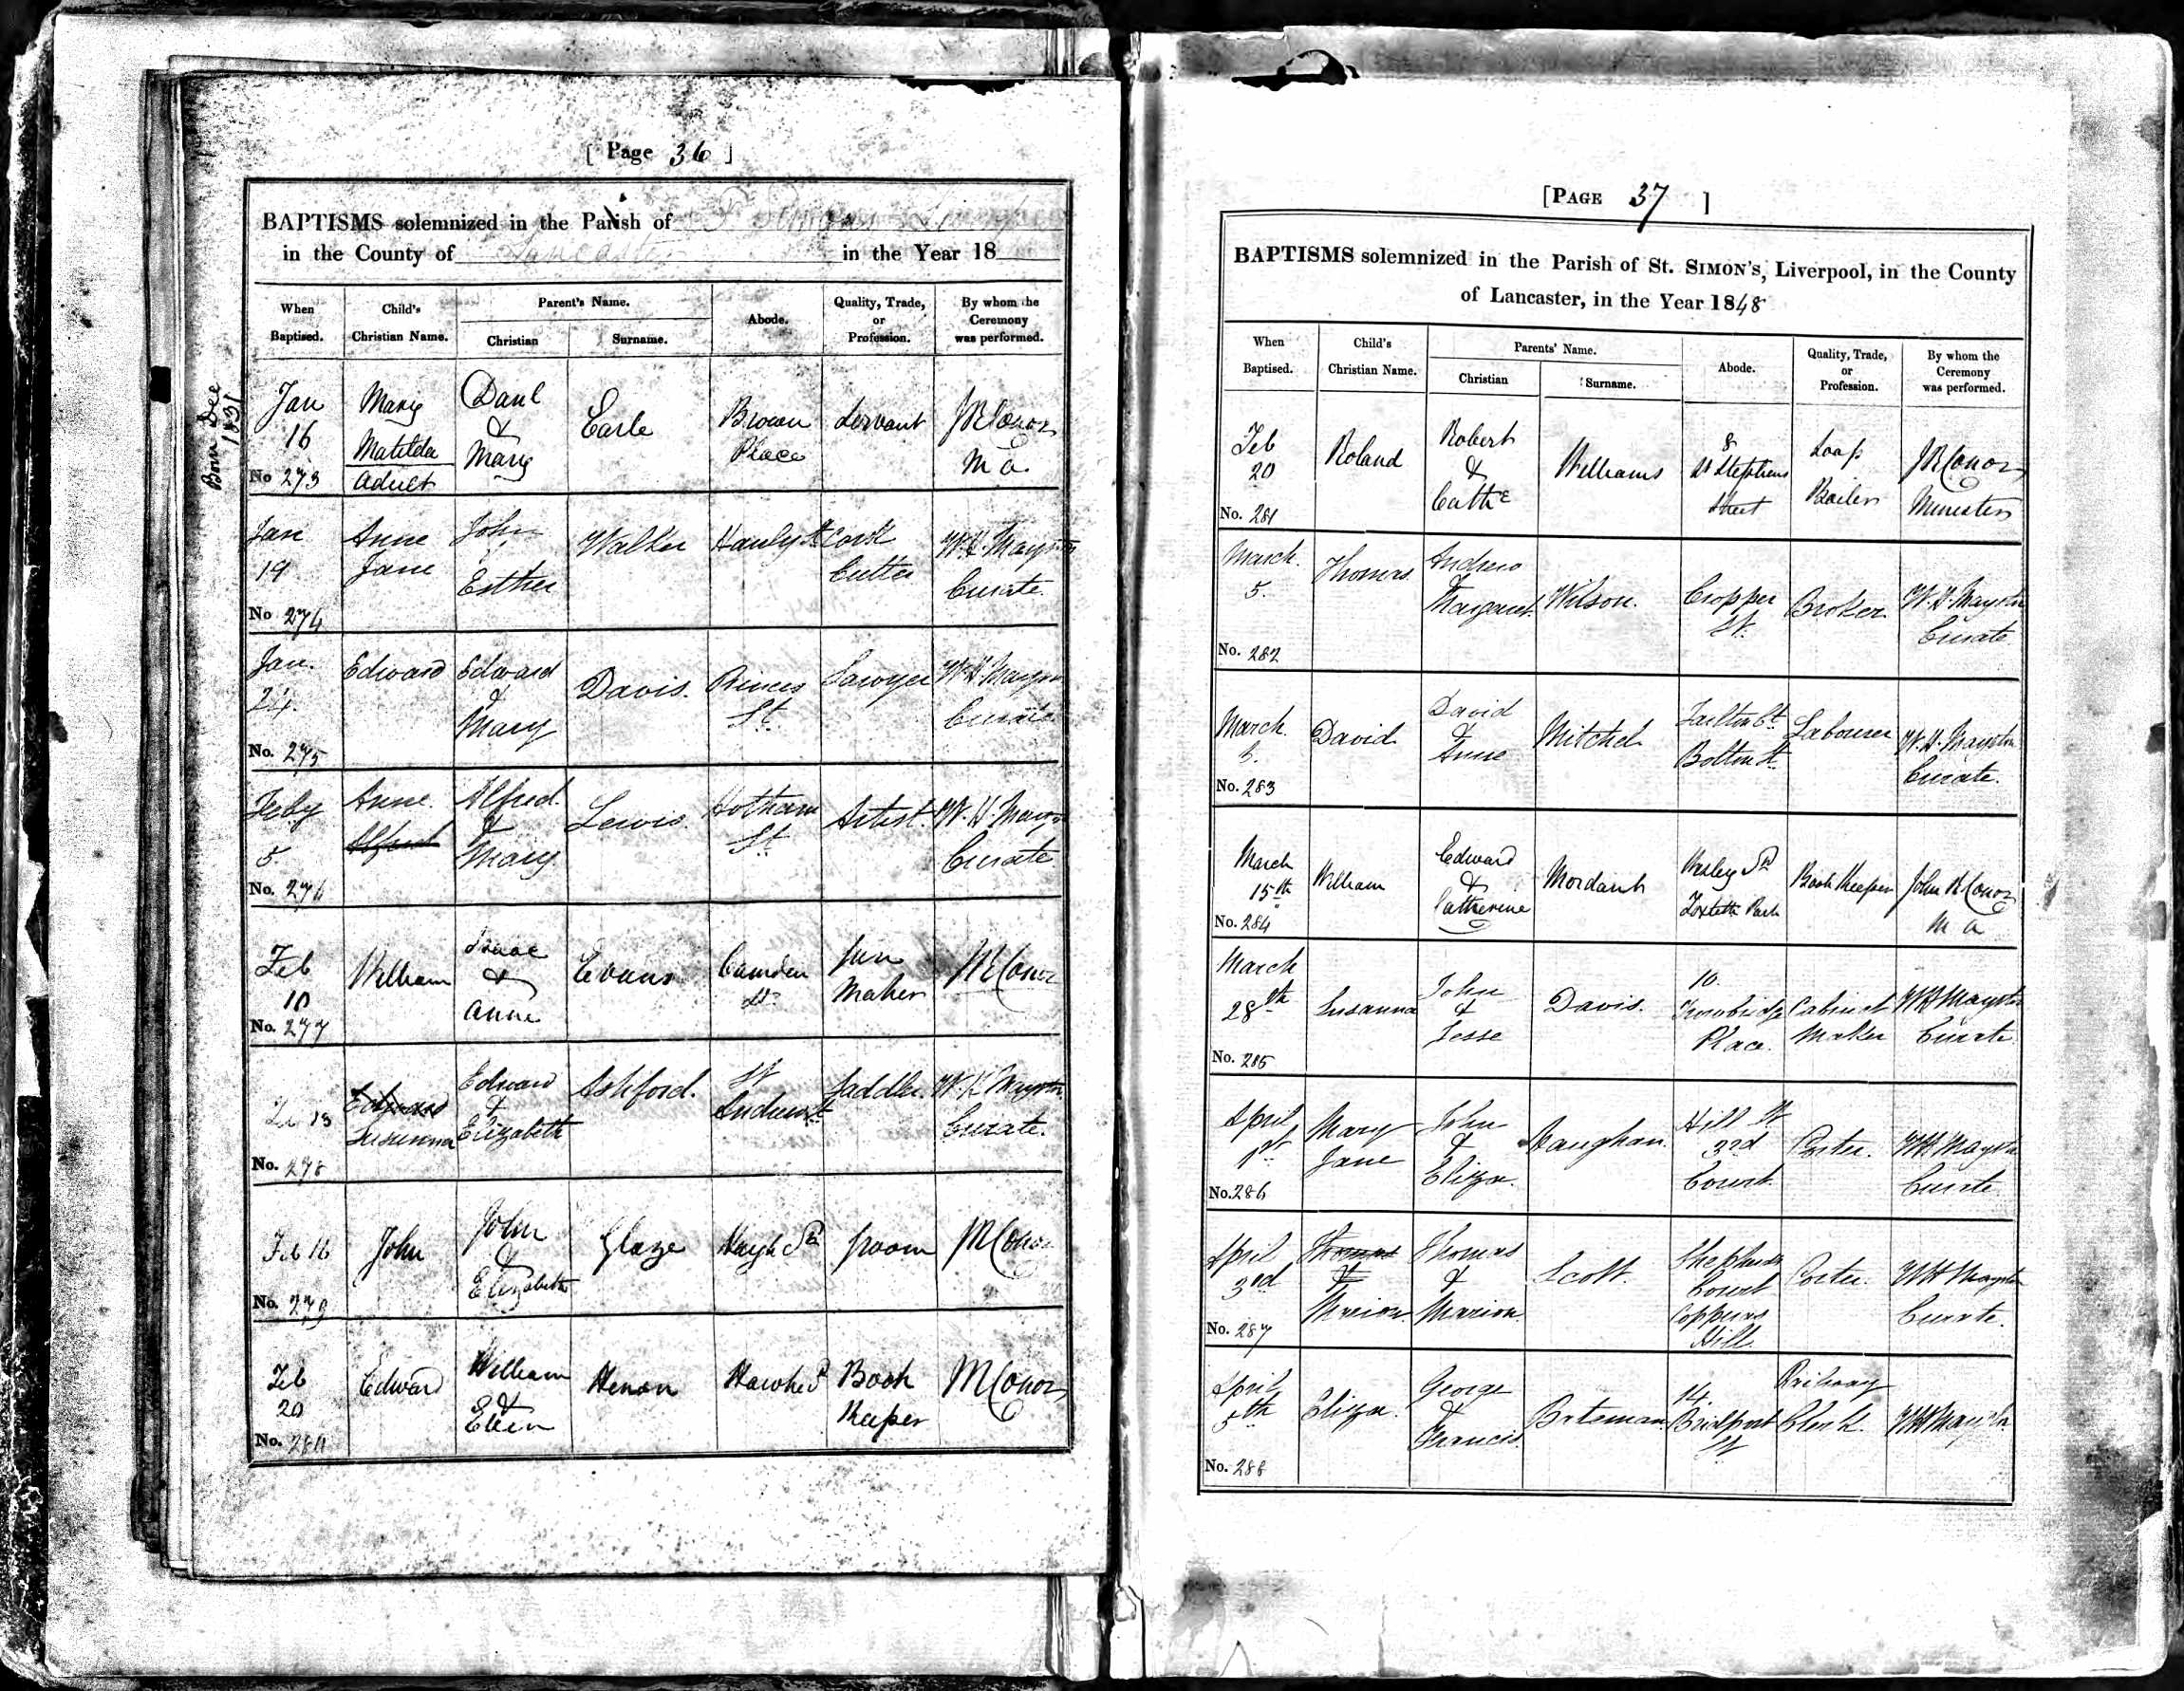 [ Page 36 ]
BAPTISMS solemnized in the Parish of St Simons Liverpool
in the County of Lancaster in the Year 18
When Baptised.
Child's Christian Name.
Parent's Name.
Christian
Surname.
Abode.
Quality, Trade, or Profession.
By whom the Ceremony was performed.
Born Dec 1831
Jan 16 No 273
Mary Matilda Adult
Danl & Mary
Earle
Brown Place
Servant
JR Conor M A
Jan 19 No 274
Anne Jane
John & Esther
Walker
Cork Cutter
Curate.
Jan. 24. No. 275
Edward
Edward & Mary
Davis.
Princes St.
Sawyer
Curate
Feby 5 No. 276
Anne Alfred
Alfred & Mary
Lewis.
Hotham St.
Artist.
Curate
Feb 10 No. 277
William
Isaac & Anne
Evans
Camden St
Gun Maker
JR Conor
Feb 13 No. 278
Edward Susanna
Edward & Elizabeth
Ashford.
St Andrew St
Saddler.
Curate.
Feb 16 No. 279
John
John & Elizabeth
Glaze
Groom
JR Conor
Feb 20 No. 280
Edward
William & Ellen
Hawke St
Book Keeper
JR Conor
[PAGE 37 ]
BAPTISMS solemnized in the Parish of St. SIMON'S, Liverpool, in the County
of Lancaster, in the Year 1848
When Baptised.
Child's Christian Name.
Parents' Name.
Christian
Surname.
Abode.
Quality, Trade, or Profession.
By whom the Ceremony was performed.
Feb 20 No. 281
Roland
Robert & Cathe
Williams
8 St Stephens Street
Soap Boiler
JR Conor Minister
March. 5. No. 282
Thomas.
Andrew & Margaret.
Wilson.
Cropper St.
Broker.
Curate
March. No. 283
David
David & Anne
Mitchel
Bolton St.
Labourer
Curate.
March 15th No. 284
William
Edward & Catherine
Mordaunt
Wesley St Toxteth Park
Book Keeper
John R Conor M A
March 28th No. 285
Susanna
John & Jesse
Davis.
10. Place.
Cabinet Maker
Curate
April 1st No. 286
Mary Jane
John & Eliza.
Vaughan.
Hill St 3rd Court
Porter.
Curate
April 3rd No. 287
Thomas & Marion.
Thomas & Marion.
Scott.
Shepherds Court Copperas Hill.
Porter.
Curate.
April 5th No. 288
Eliza.
George & Francis.
Bateman.
14. Bridport St
Railway Clerk.